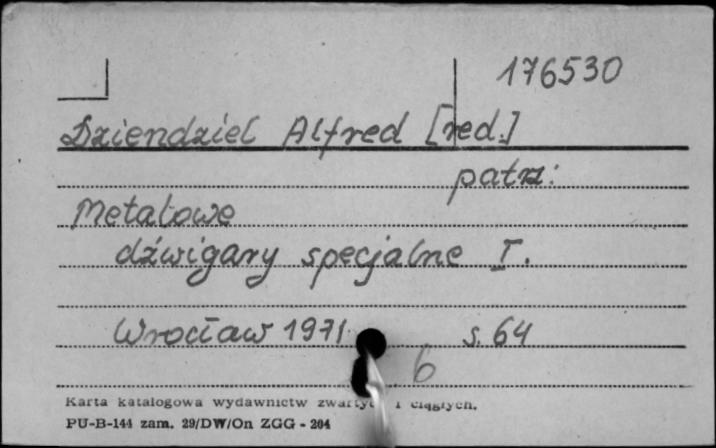 176530
Dziendziel Alfred [red.]
patrz:
Metalowe
dźwigary specjalne I.
Wrocław 1971 s. 64
6
Karta katalogowa wydawnictw zwartych i ciągłych.
PU-B-144 zam. 29/DW/On ZGG - 204